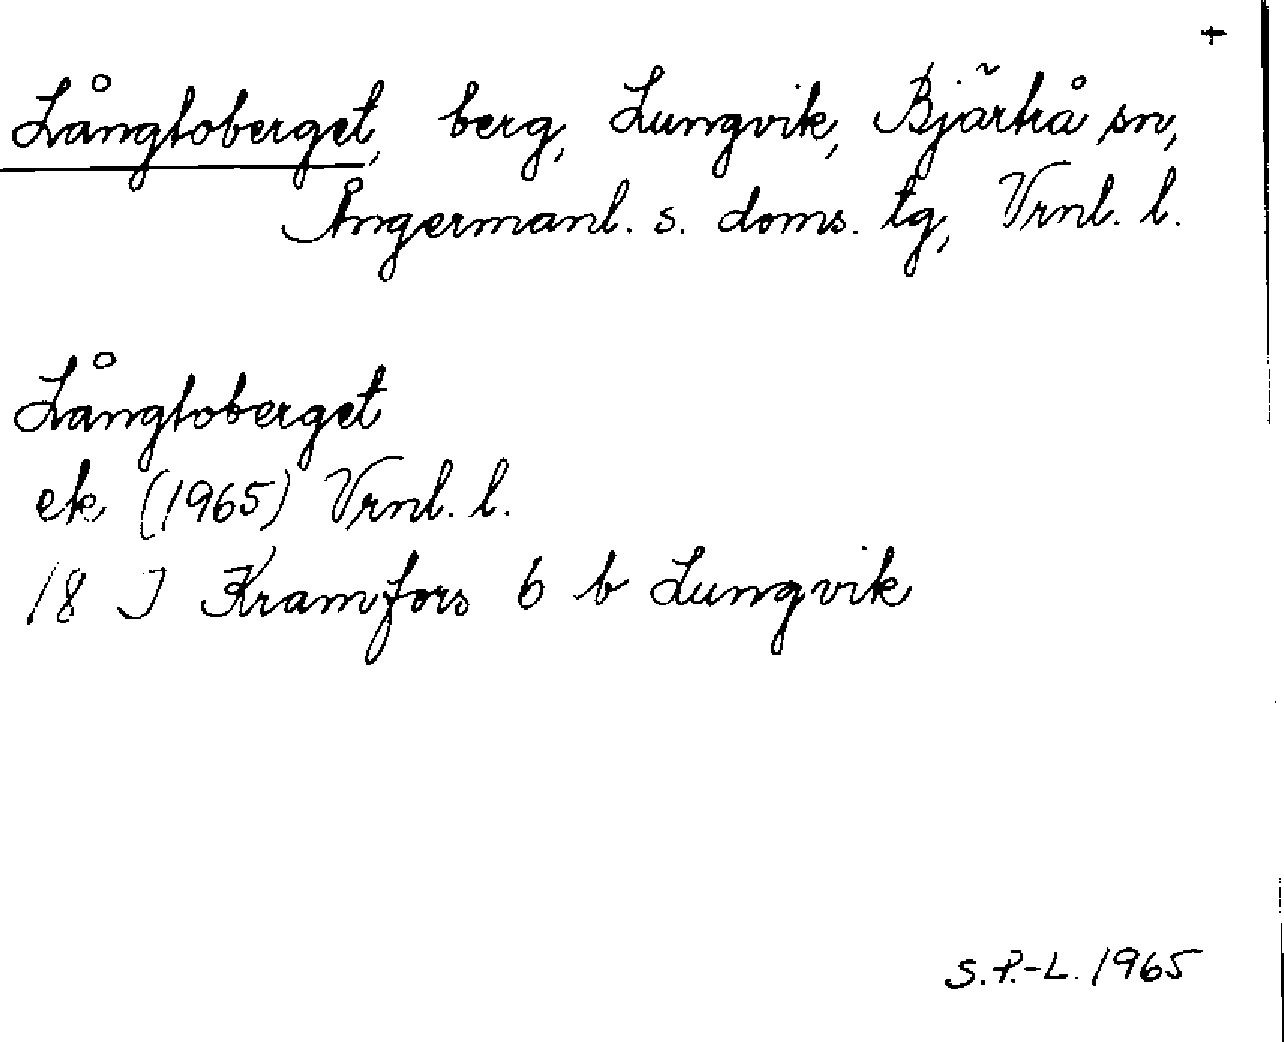 +
Långtoberget, berg, Lungvik, Bjärtrå sn,
Ångermanl. s. doms. tg, Vrnl. l.
Långtoberget
ek (1965) Vrnl. l.
18 J Kramfors 6 b Lungvik
S.P.-L. 1965